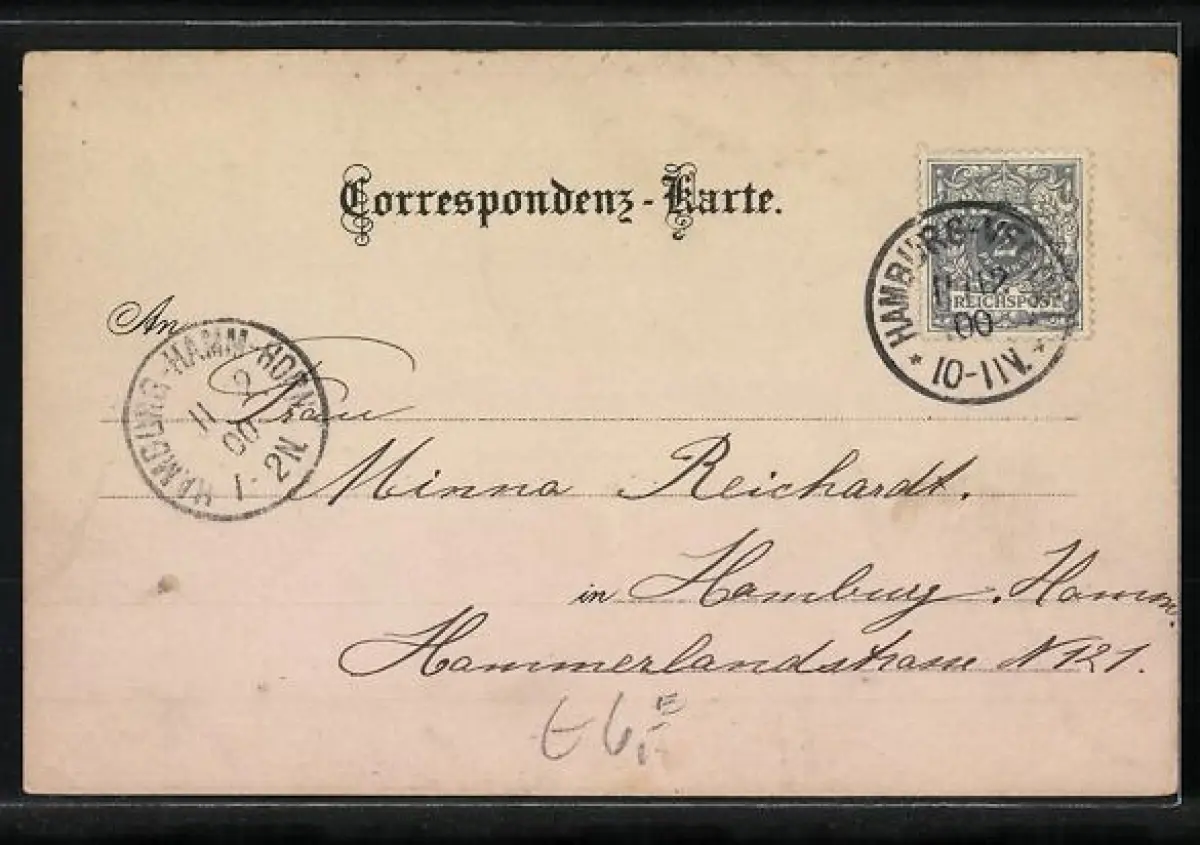 Correspondenz-Karte.
HAMBURG-VE
2
11 12
REICHSPOST
00
* 10-11V. *
An
HAMBURG-HAMM-HORN
2
11
00
1-2N.
Frau
Minna Reichardt.
in Hamburg. Hamm.
Hammerlandstrasse N 121.
6